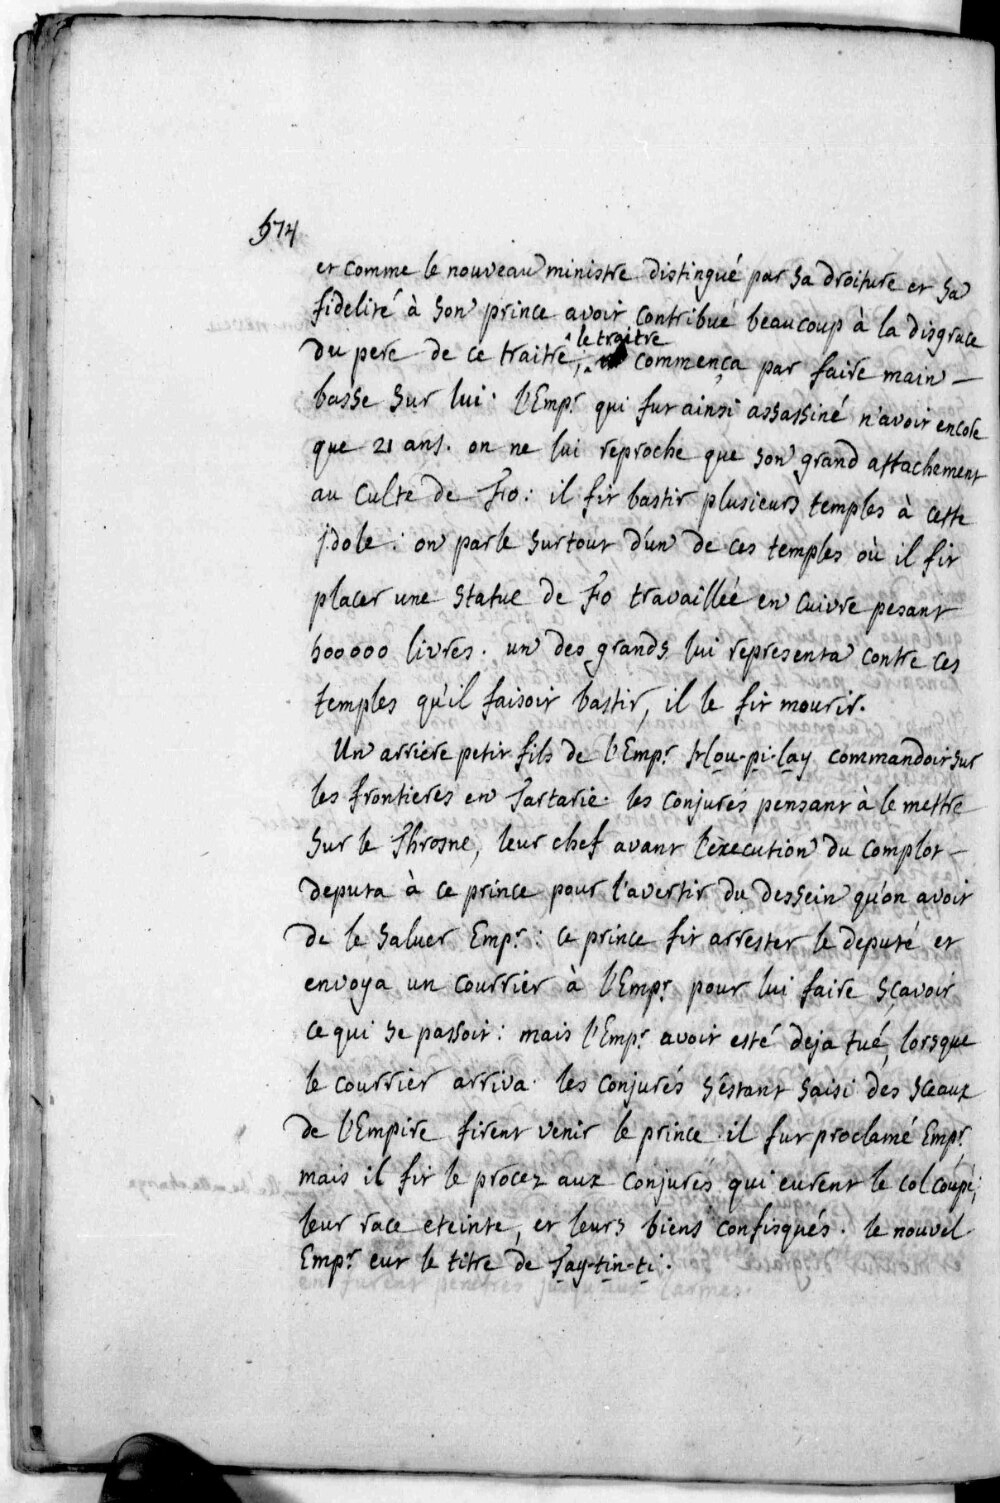 574
et comme le nouveau ministre distingué par sa droiture et sa
fidelité à son prince avoit contribué beaucoup à la disgrace
le traitre
du pere de ce traitre, commença par faire main-
basse sur lui. l'Empr qui fut ainsi assassiné n'avoit encore
que 21 ans. on ne lui reproche que son grand attachement
au culte de Fo: il fit bastir plusieurs temples à cette
jdole: on parle surtout d'un de ces temples où il fit
placer une statue de Fo travaillée en cuivre pesant
500000 livres. un des grands lui representa contre ces
temples qu'il faisoit bastir, il le fit mourir.
Un arriere petit fils de l'Empr Hou-pi-lay commandoit sur
les frontieres en Tartarie. les conjurés pensant à le mettre
sur le Throsne, leur chef avant l'execution du complot-
deputa à ce prince pour l'avertir du dessein qu'on avoit
de le saluer Empr: ce prince fit arrester le deputé et
envoya un courrier à l'Empr pour lui faire sçavoir
ce qui se passoit: mais l'Empr avoit esté deja tué, lorsque
le courrier arriva. les conjurés s'estant saisi des sceaux
de l'Empire firent venir le prince. il fut proclamé Empr
mais il fit le procez aux conjurés qui eurent le col coupé;
leur race eteinte, et leurs biens confisqués. le nouvel
Empr eut le titre de Tay-tin-ti.